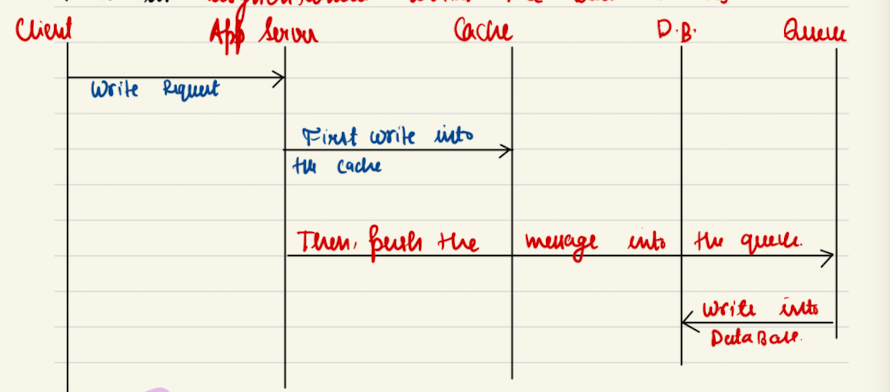 Client App Server Cache D.B. Queue
Write Request
First write into
the cache
Then, push the message into the queue.
Write into
DataBase.